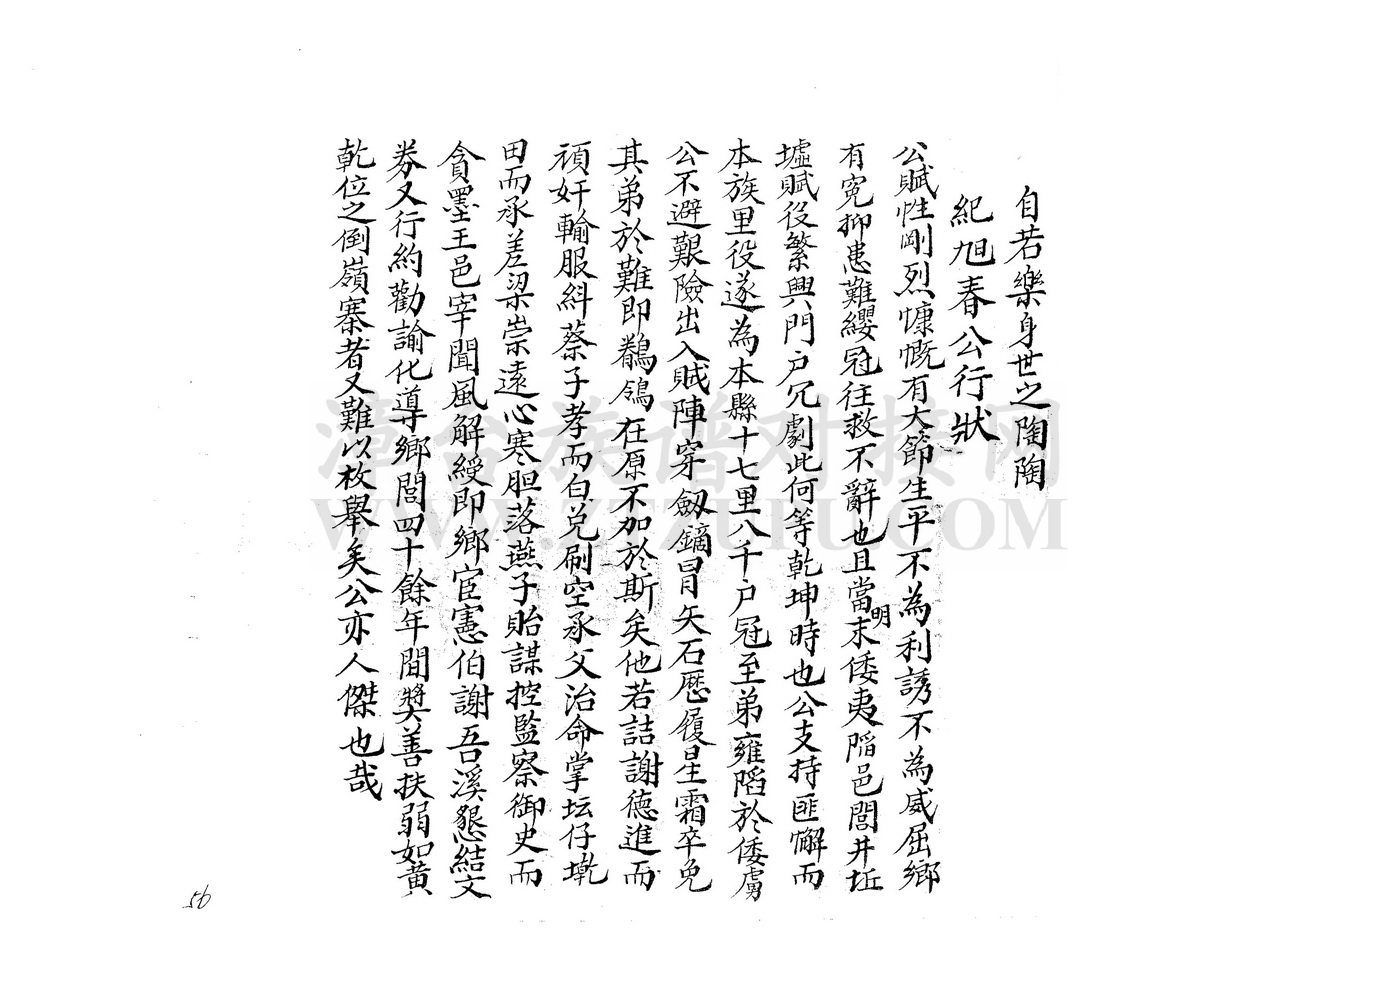 自若樂身世之陶陶
紀旭春公行狀
公賦性剛烈慷慨有大節生平不為利誘不為威屈鄉
有寃抑患難纓冠往救不辭也且當明末倭夷陷邑閭井坵
墟賦役繁興門户冗劇此何等乾坤時也公支持匪懈而
本族里役遂為本縣十七里八千户冠至弟雍陷於倭虜
公不避艱險出入賊陣穿劔鏑冒矢石歷履星霜卒免
其弟於難即鶺鴒在原不加於斯矣他若詰謝德進而
頑奸輸服糾蔡子孝而白兑刷空承父治命掌坛仔墘
田而承差梁崇遠心寒胆落燕子貽謀控監察御史而
貪墨王邑宰聞風解綬即鄉宦憲伯謝吾溪懇結文
券又行約勸諭化導鄉閭四十餘年間獎善扶弱如黄
乾位之倒嶺寨者又難以枚舉矣公亦人傑也哉
56
漳台族谱对接网
WWW.ZTZUPU.COM